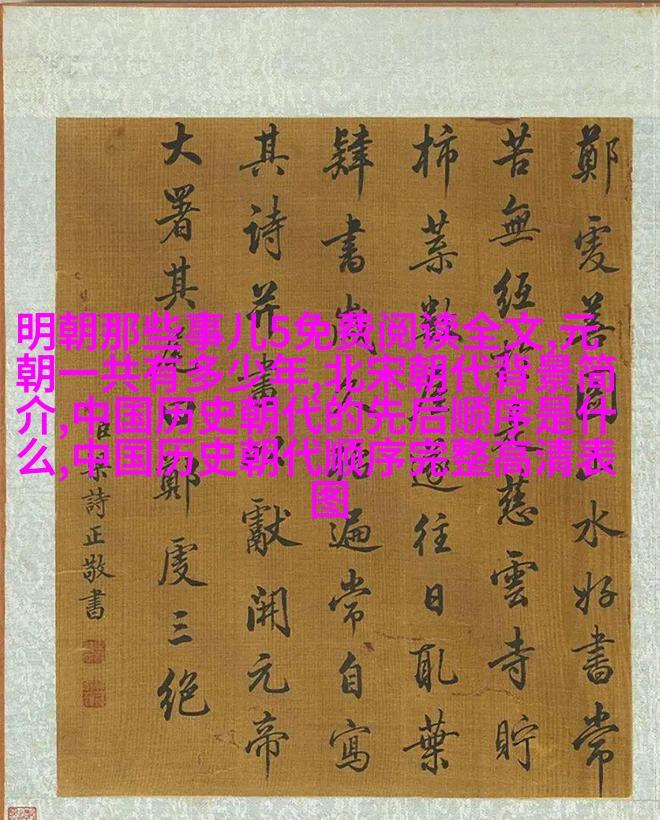 鄭虔善圖山水好書常
苦無紙於慈雲寺貯
柿葉數屋遂往日取葉
肄書歲久殆遍常自寫
其詩并畫以獻開元帝
大署其尾鄭虔三絕
臣梁詩正敬書
明朝那些事儿5免费阅读全文,元
朝一共有多少年,北宋朝代背景简
介,中国历史朝代的先后顺序是什
么,中国历史朝代顺序完整高清表
图